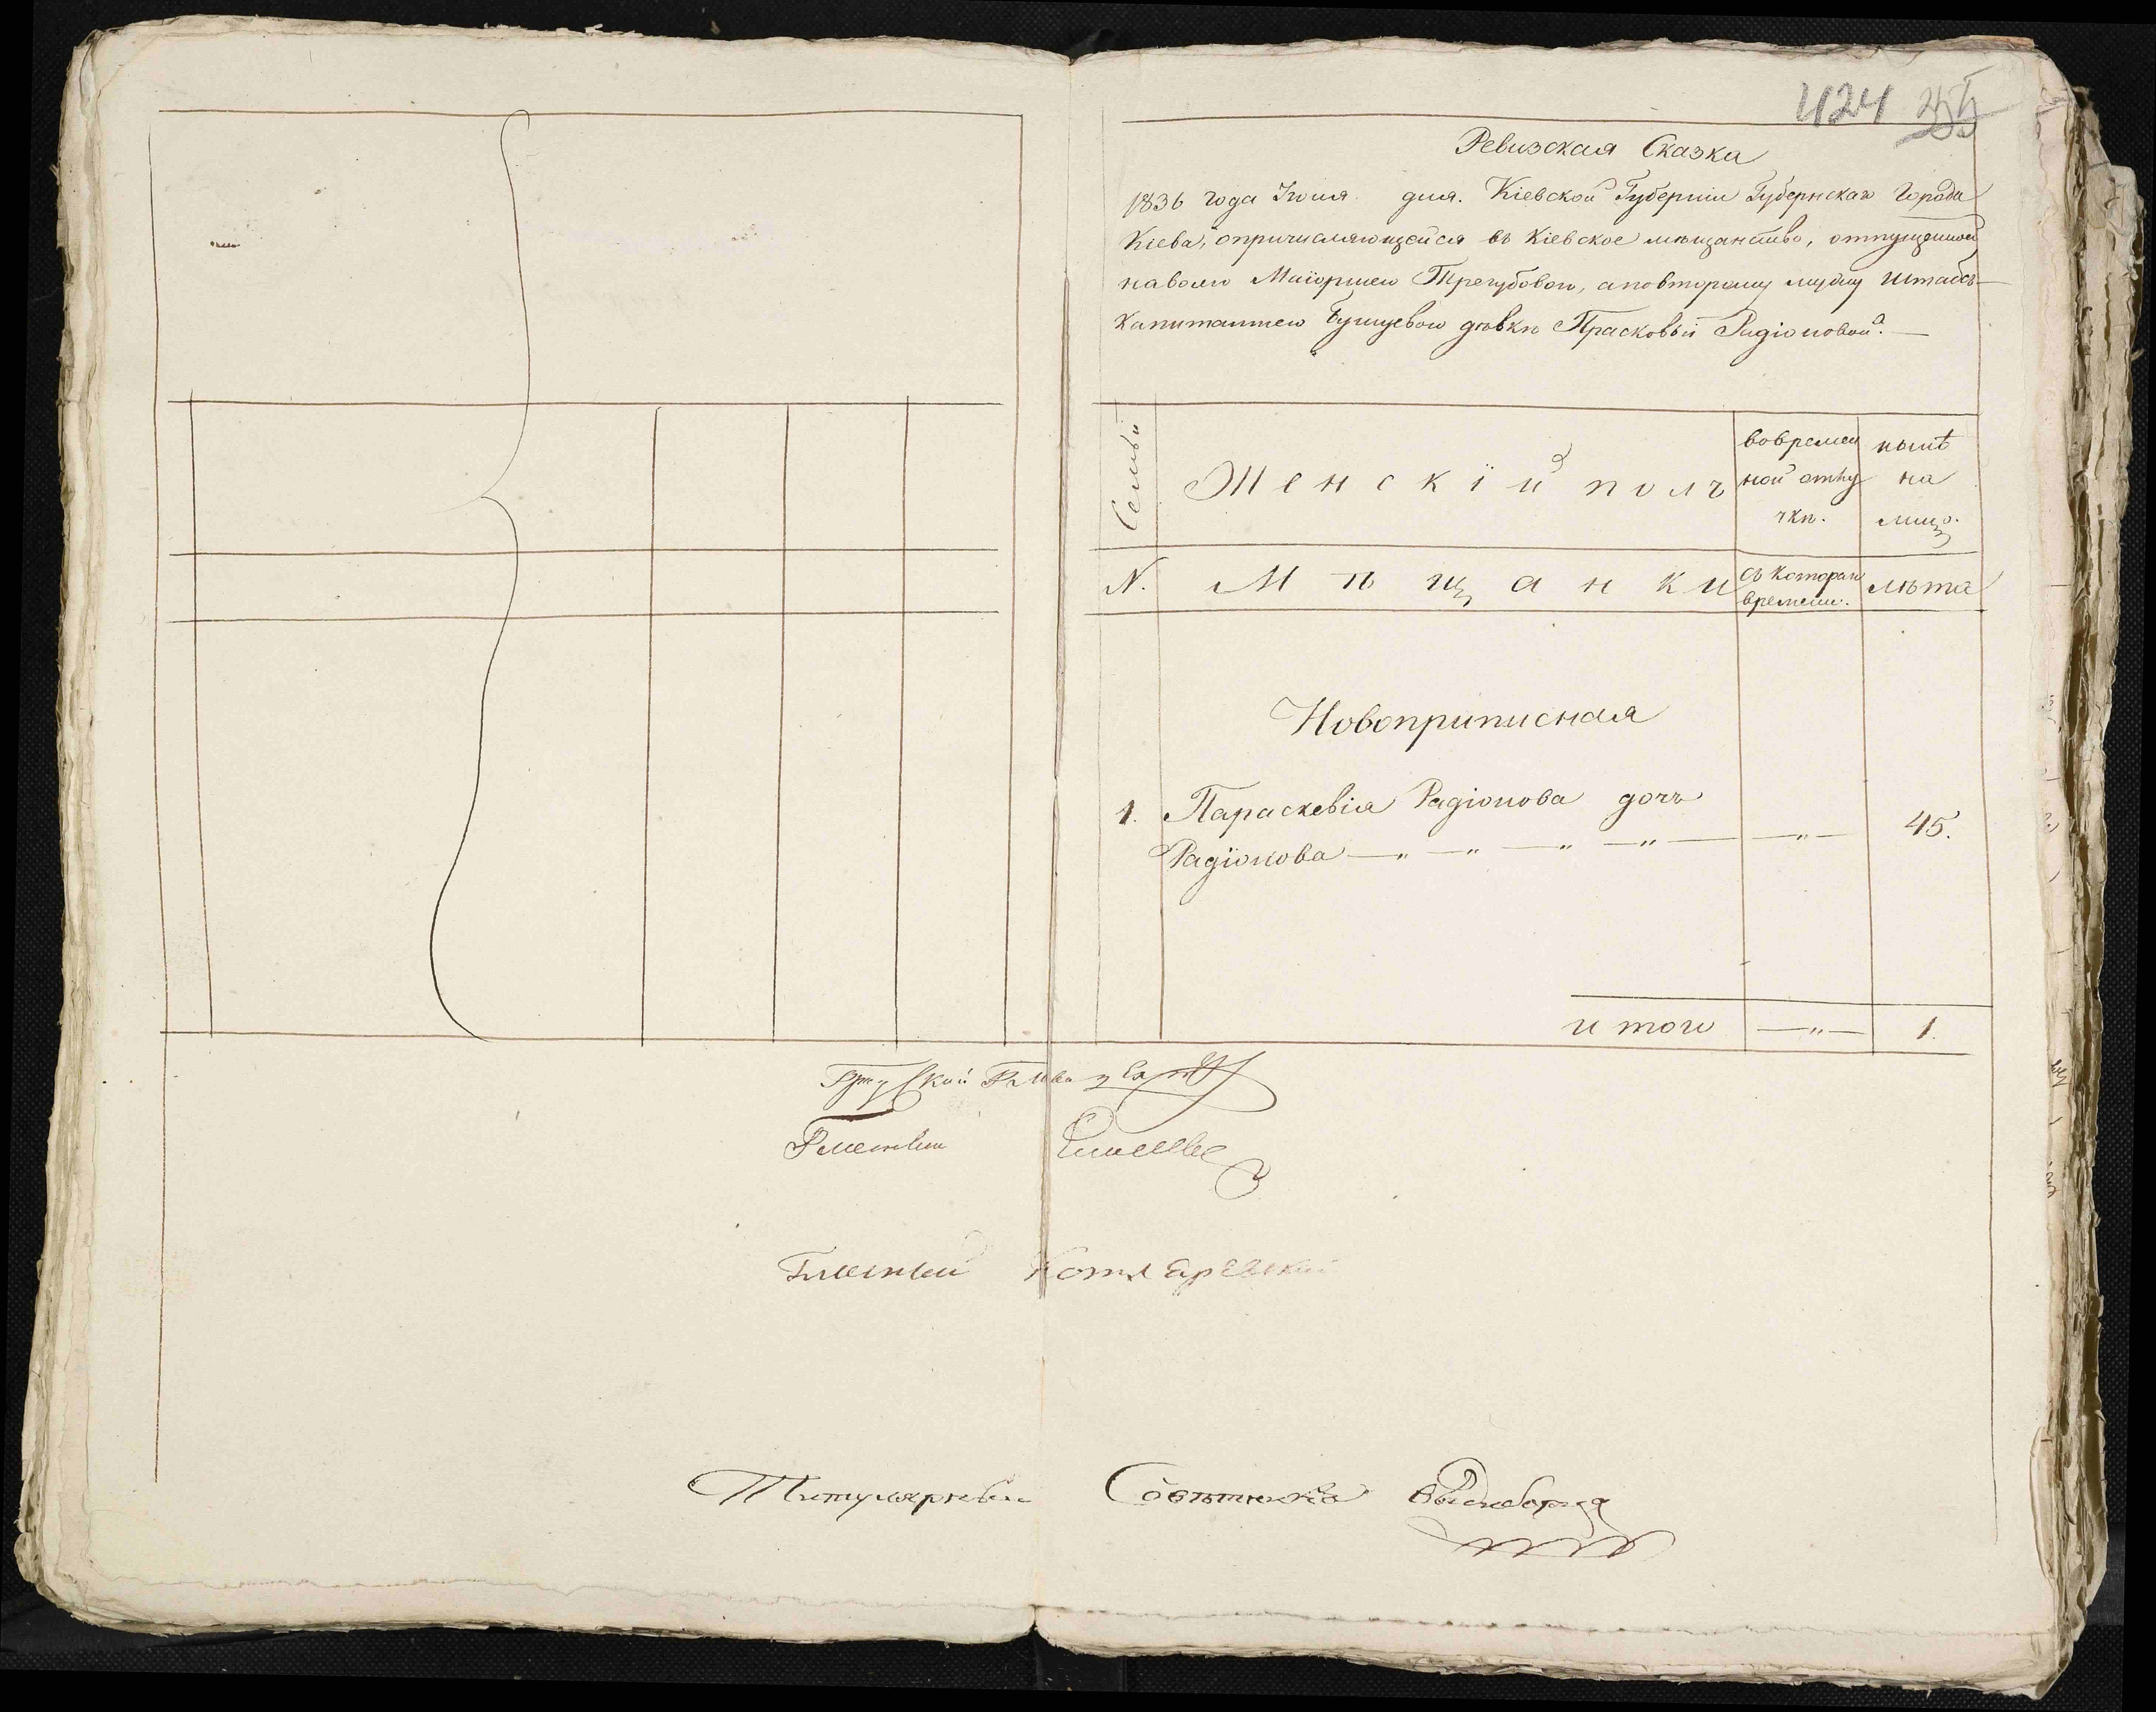 424
Ревизская Сказка
1836 года Июня дня. Кіевской Губерніи Губернскаго Города
Кіева, опричисляющейся въ Кіевское мѣщанство, отпущенной
наволю Маіоршею Трегубовою, аповторому мужу Штабсъ-
Капитаншею дѣвкѣ Прасковьи Радіоновой. —
Семьи
Женскій полъ
вовремен
ной отлу
чкѣ.
нынѣ
на
лицо.
N.
Мѣщанки
съ котораго
времени.
лѣта
Новоприписная
1. Параскевія Радіонова дочь
Радіонова — „ — „ — „ — „ — — „ — 45.
итого — „ — 1.
Гласный
Гласный Котляревскій
Титулярный Совѣтникъ